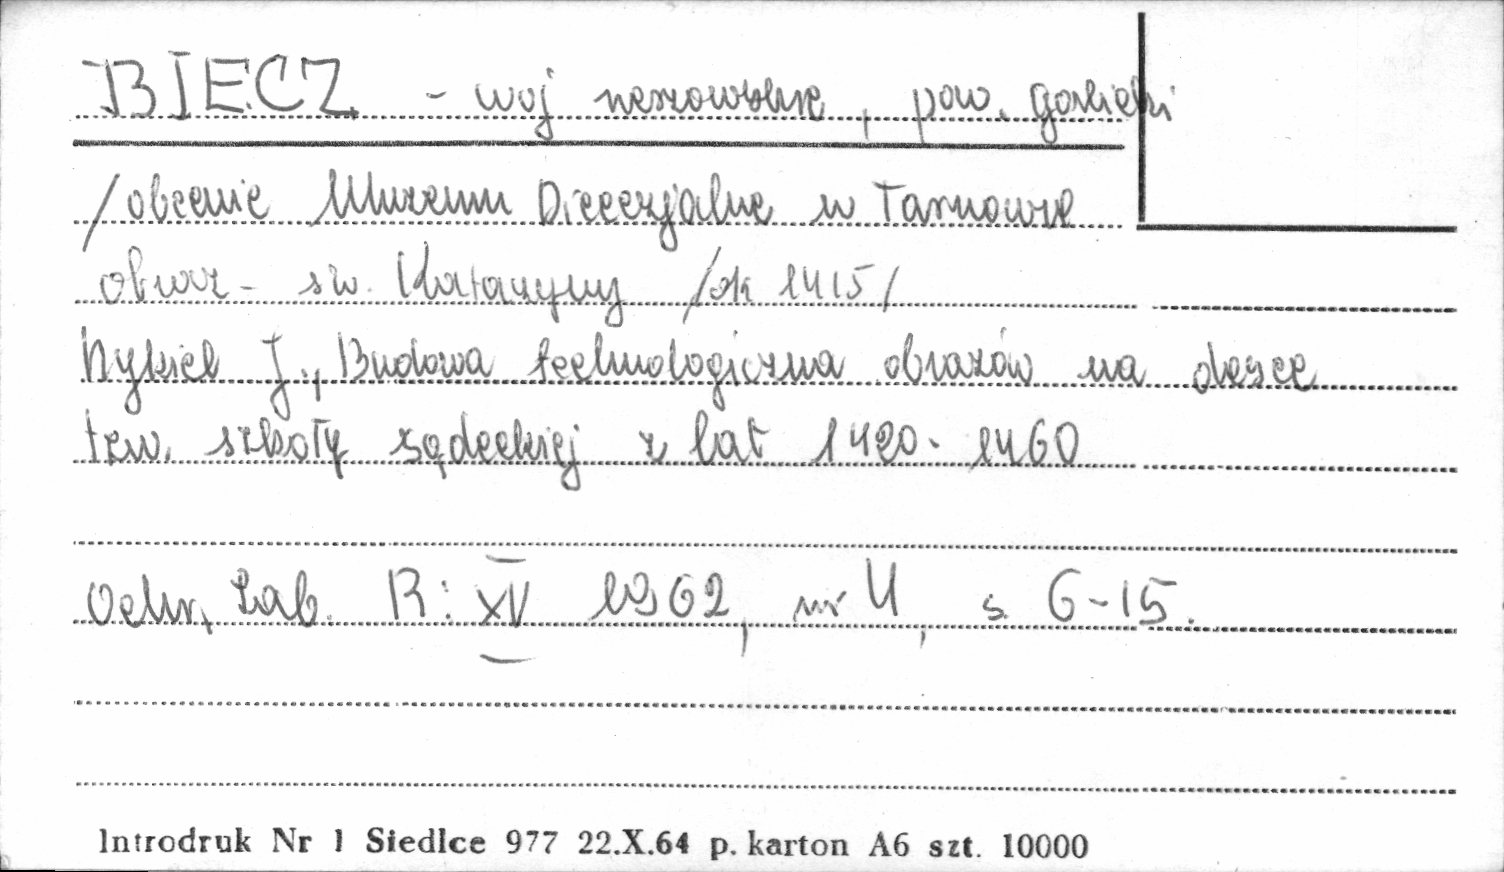 BIECZ - woj rzeszowskie, pow. gorlicki
/obecnie Muzeum Diecezjalne w Tarnowie
obraz - św. Katarzyny /ok 1415/
Nykiel J., Budowa technologiczna obrazów na desce
tzw. szkoły sądeckiej z lat 1420-1460
Ochr. Zab. R: XV 1962, nr 4, s. 6-15.
Introdruk Nr 1 Siedlce 977 22.X.64 p. karton A6 szt. 10000